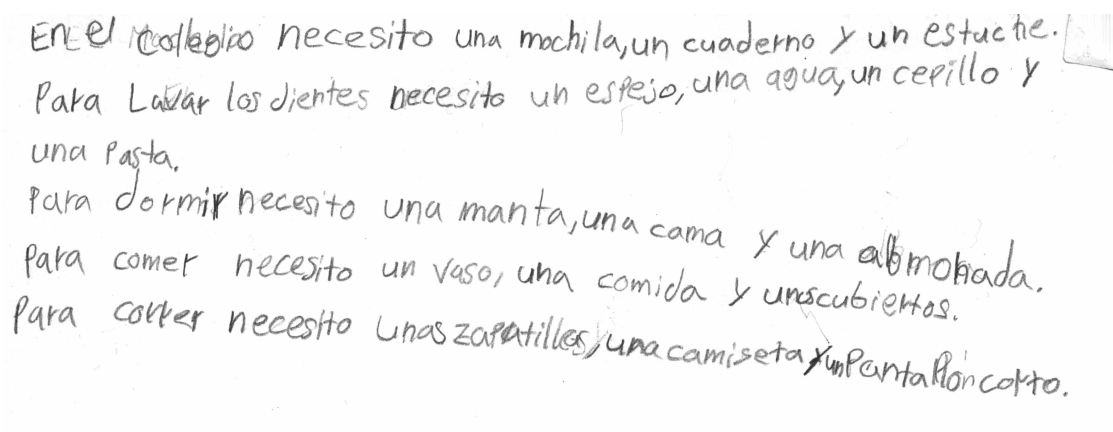 En el collegio necesito una mochila, un cuaderno y un estuche.
Para Lavar los dientes necesito un espejo, una agua, un cepillo y
una Pasta.
Para dormir necesito una manta, una cama y una almohada.
Para comer necesito un vaso, una comida y unos cubiertos.
Para correr necesito unas zapatillas, una camiseta y un Pantalón corto.